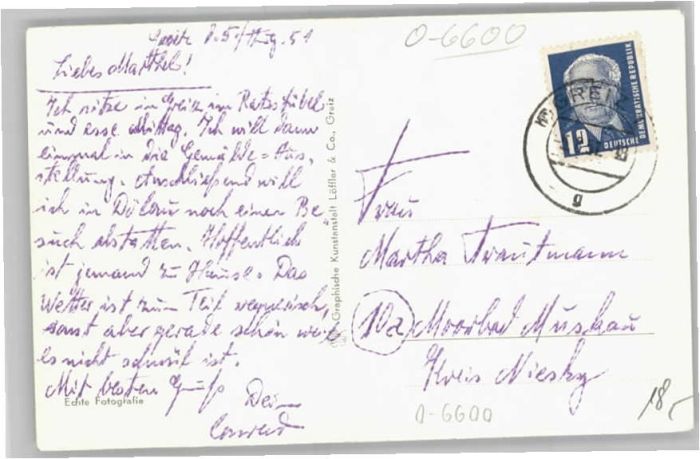 Greiz d. 5. Aug. 51
O-6600
Liebes Marthel!
Ich sitze in Greiz im Ratsstübel
und esse Mittag. Ich will dann
einmal in die Gemälde=Aus,
stellung. Anschließend will
ich in Dölau noch einen Be,
such abstatten. Hoffentlich
ist jemand zu Hause. Das
Wetter ist zum Teil regnerisch,
sonst aber gerade schön weil
es nicht schwül ist.
Mit besten Gruß
Dein
Conrad
Echte Fotografie
Graphische Kunstanstalt Löffler & Co., Greiz
DEUTSCHE DEMOKRATISCHE REPUBLIK
12
GREIZ
g
Frau
Martha Trautmann
10a Moorbad Muskau
Kreis Niesky
O-6600
18,-